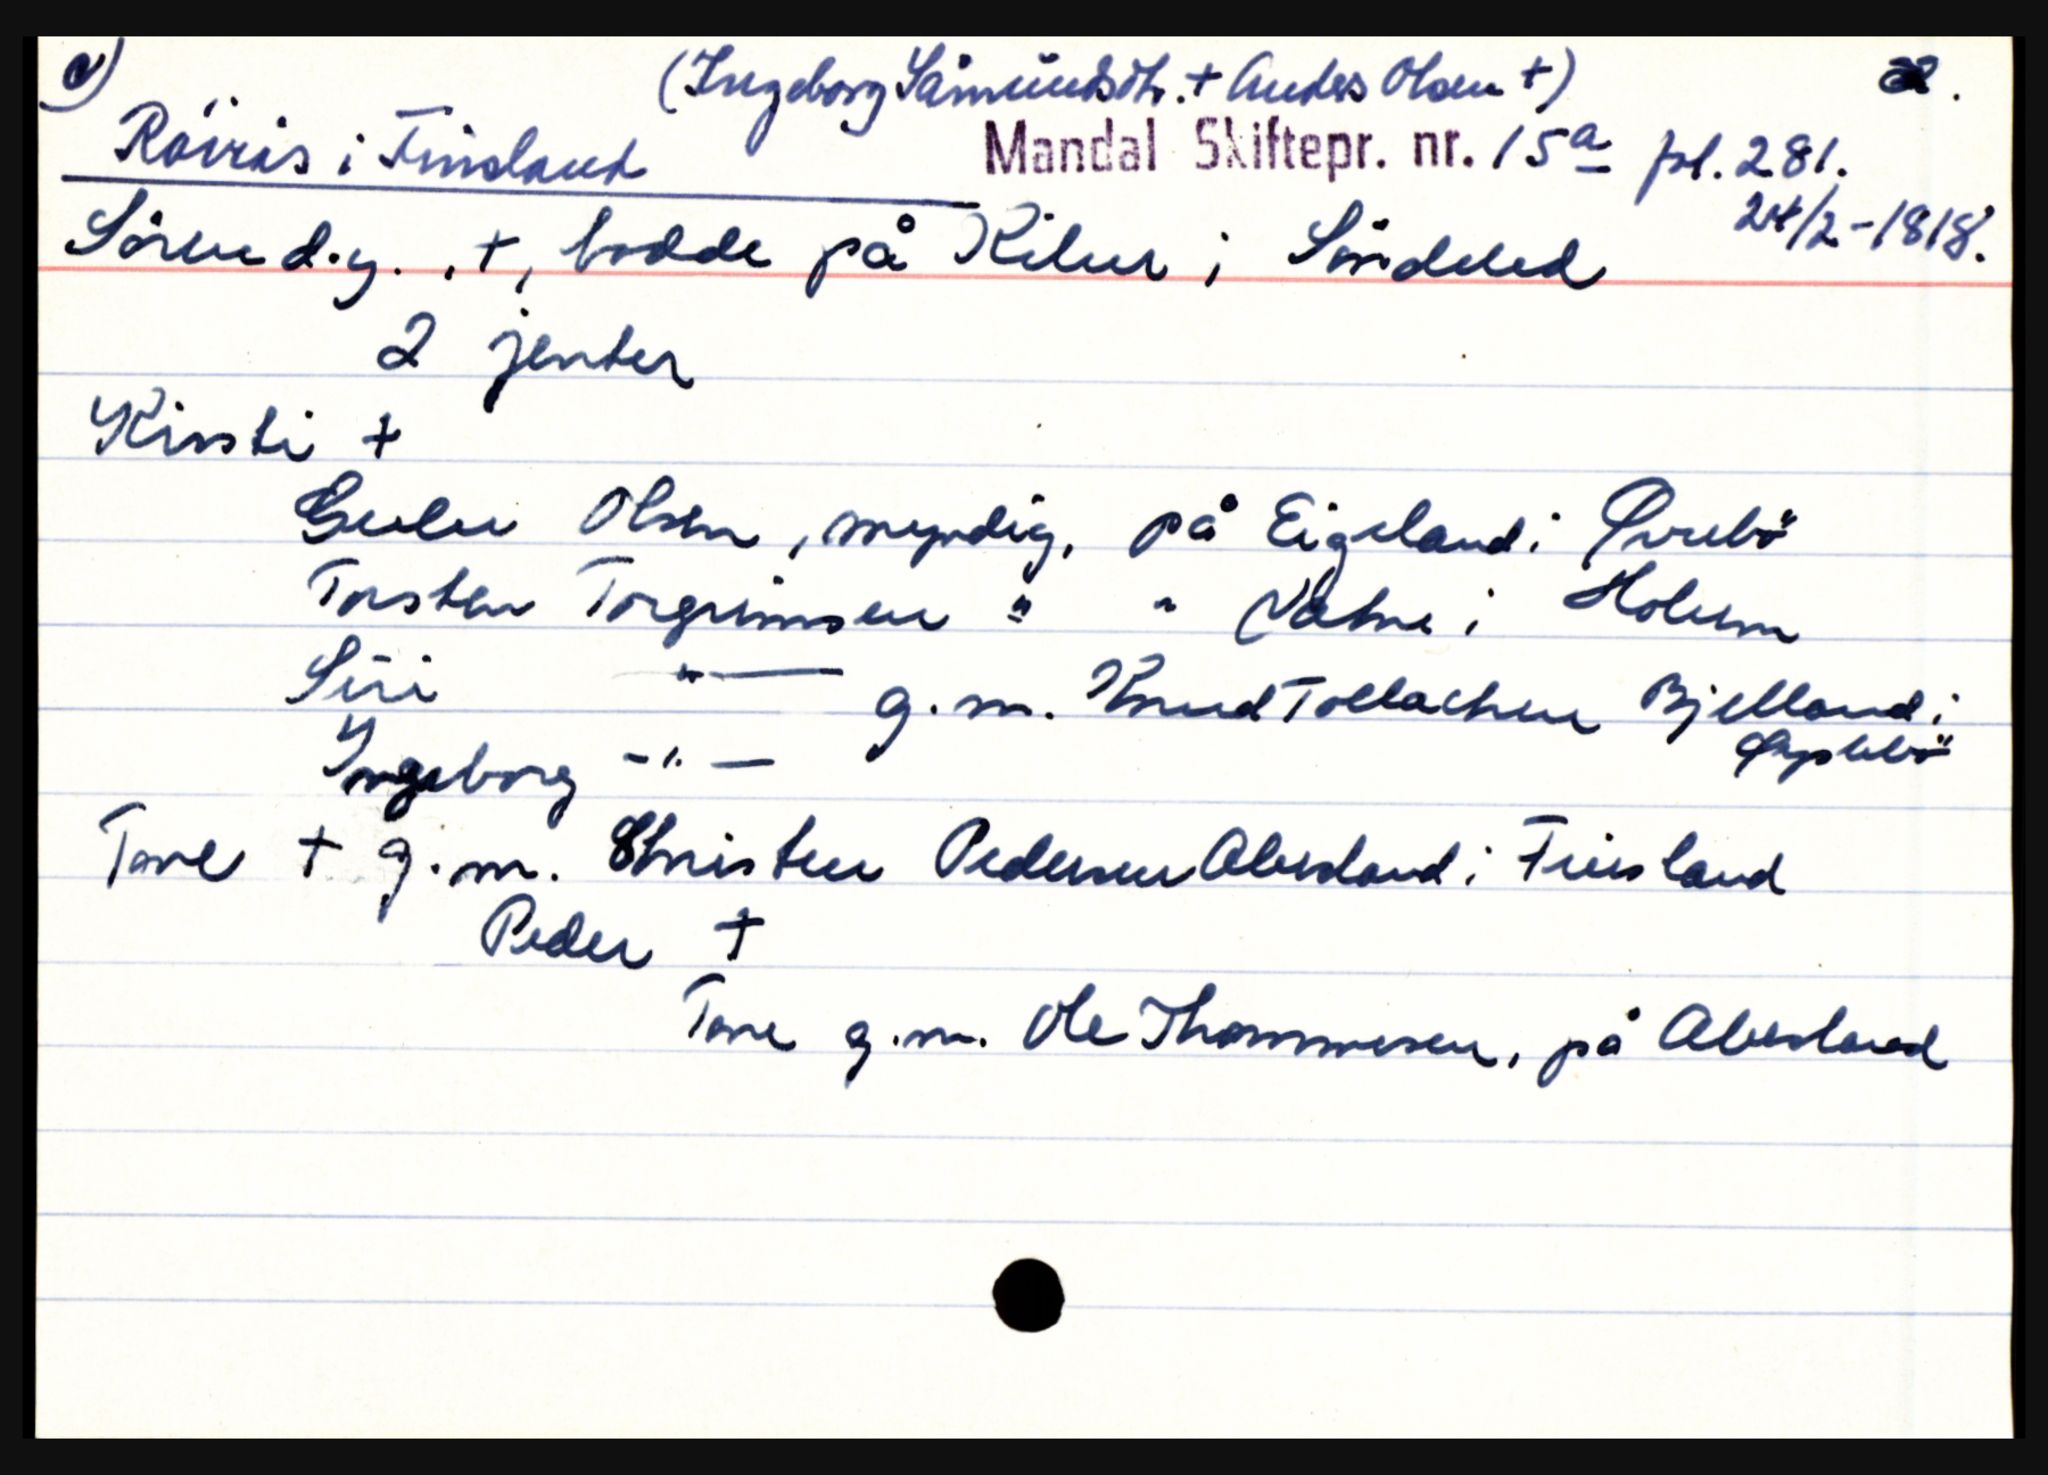 (Ingeborg Såmundsdtr. + Anders Olsen +)
Röirås i Finsland
Mandal Skiftepr. nr. 15a fol. 281.
24/2-1818.
Sören d.y. , +, bodde på Kilen i Söndeled
2 jenter
Kirsti +
Olsen, myndig, på Eigeland i Övrebö
Torsten Torgrimsen " " Vatne i Holum
Siri —"— g.m. Knud Tollachsen Bjelland i
Öyslebö
Ingeborg -"-
Tone + g.m. Christen Pedersen Abesland i Finsland
Peder +
Tone g.m. Ole Thommesen, på Abesland